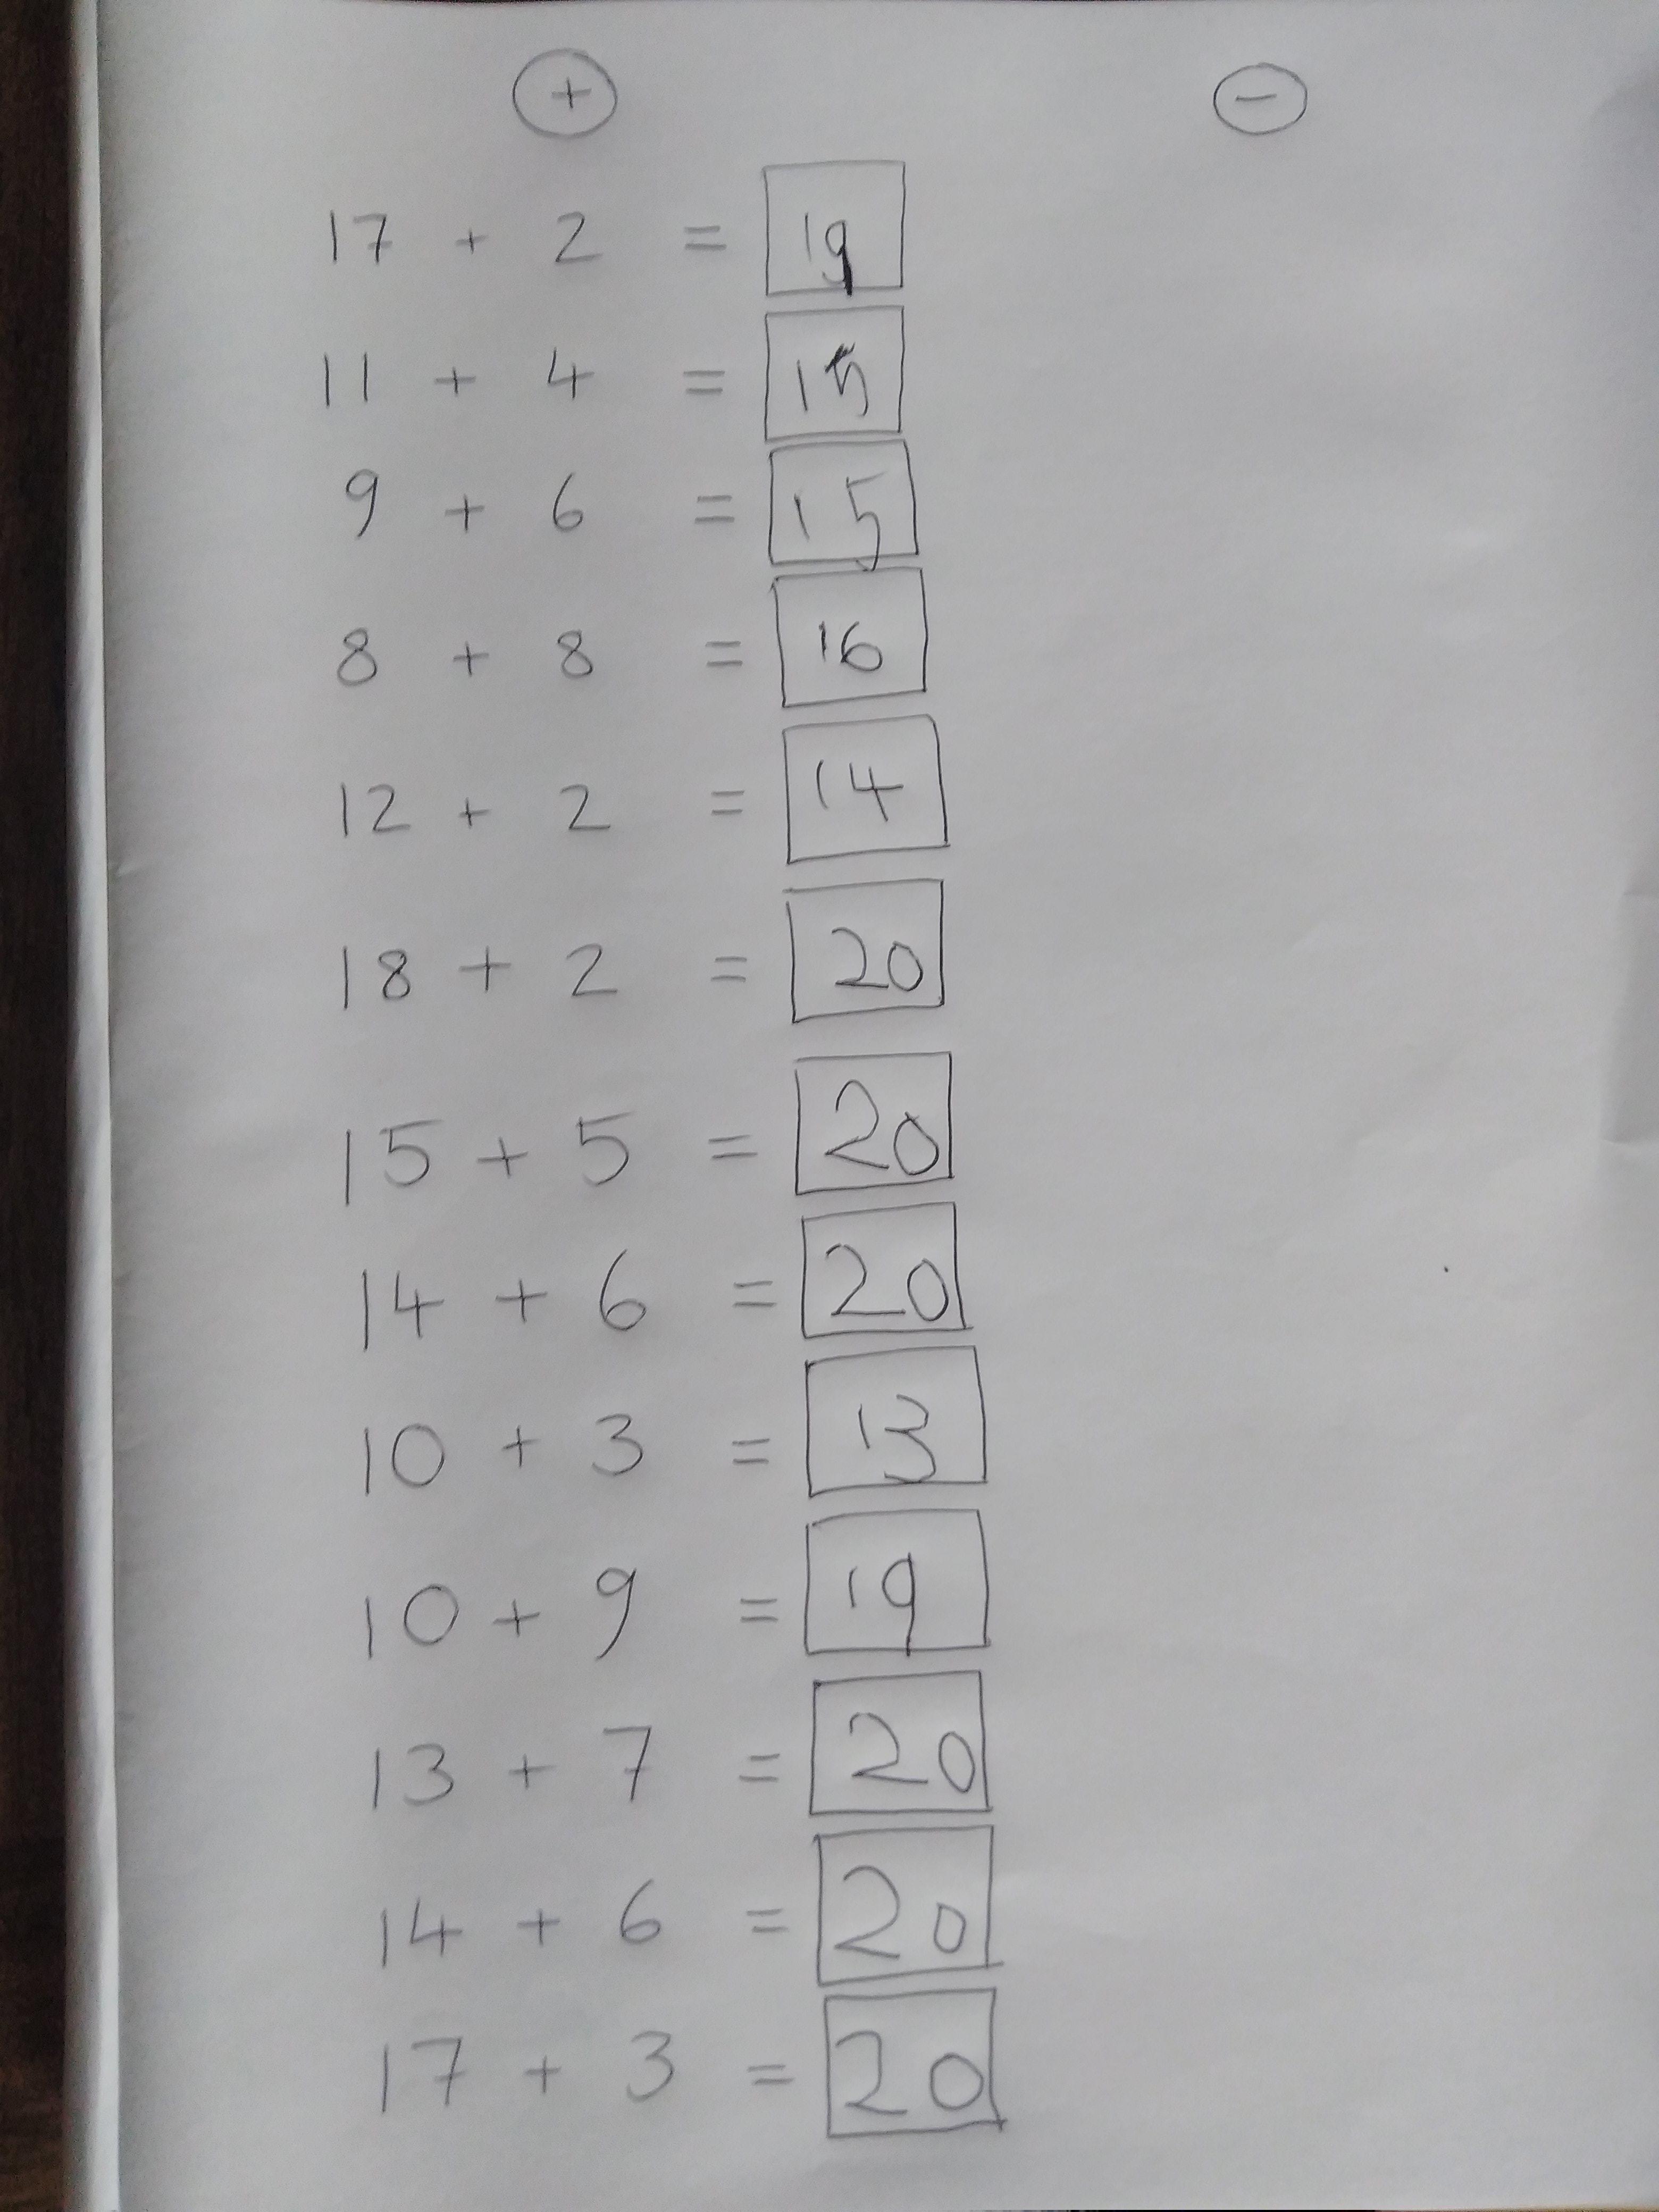 + −
17 + 2 = 19
11 + 4 = 15
9 + 6 = 15
8 + 8 = 16
12 + 2 = 14
18 + 2 = 20
15 + 5 = 20
14 + 6 = 20
10 + 3 = 13
10 + 9 = 19
13 + 7 = 20
14 + 6 = 20
17 + 3 = 20